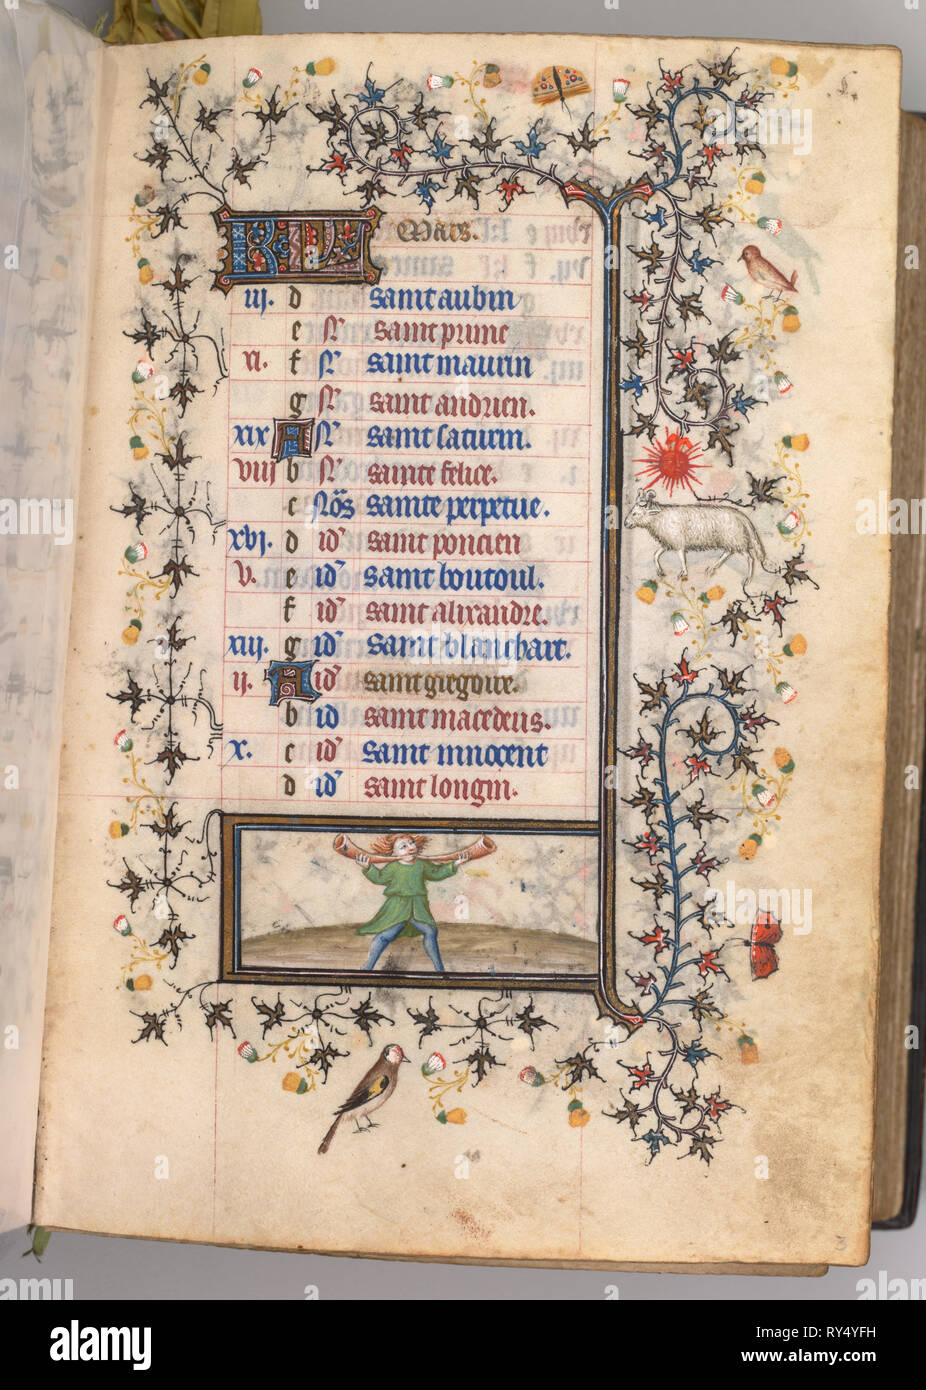 KL Mars.
iij. d saint aubin
e N saint prime
vi. f N saint maurin
g N saint andrien.
xix A N saint saturin.
viij b N sainte felice.
c Nos sainte perpetue.
xvj. d id saint poncien
v. e id saint boutoul.
f id saint alixandre.
xiij. g id saint blanchart.
ij. A id saint gregoire.
b id saint macedens.
x. c id saint innocent
d id saint longin.
3
alamy
Image ID: RY4YFH
www.alamy.com